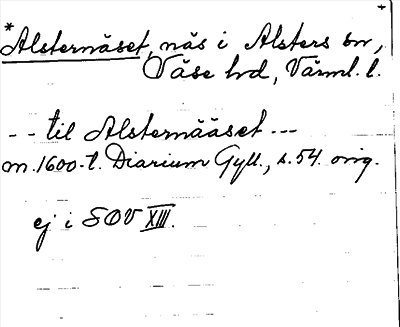 *Alsternäset, näs i Alsters sn,
Väse hd, Värml. l.
-- til Alsternääset ---
m. 1600-t. Diarium Gyll., s. 54. orig.
ej i SOV XIII.